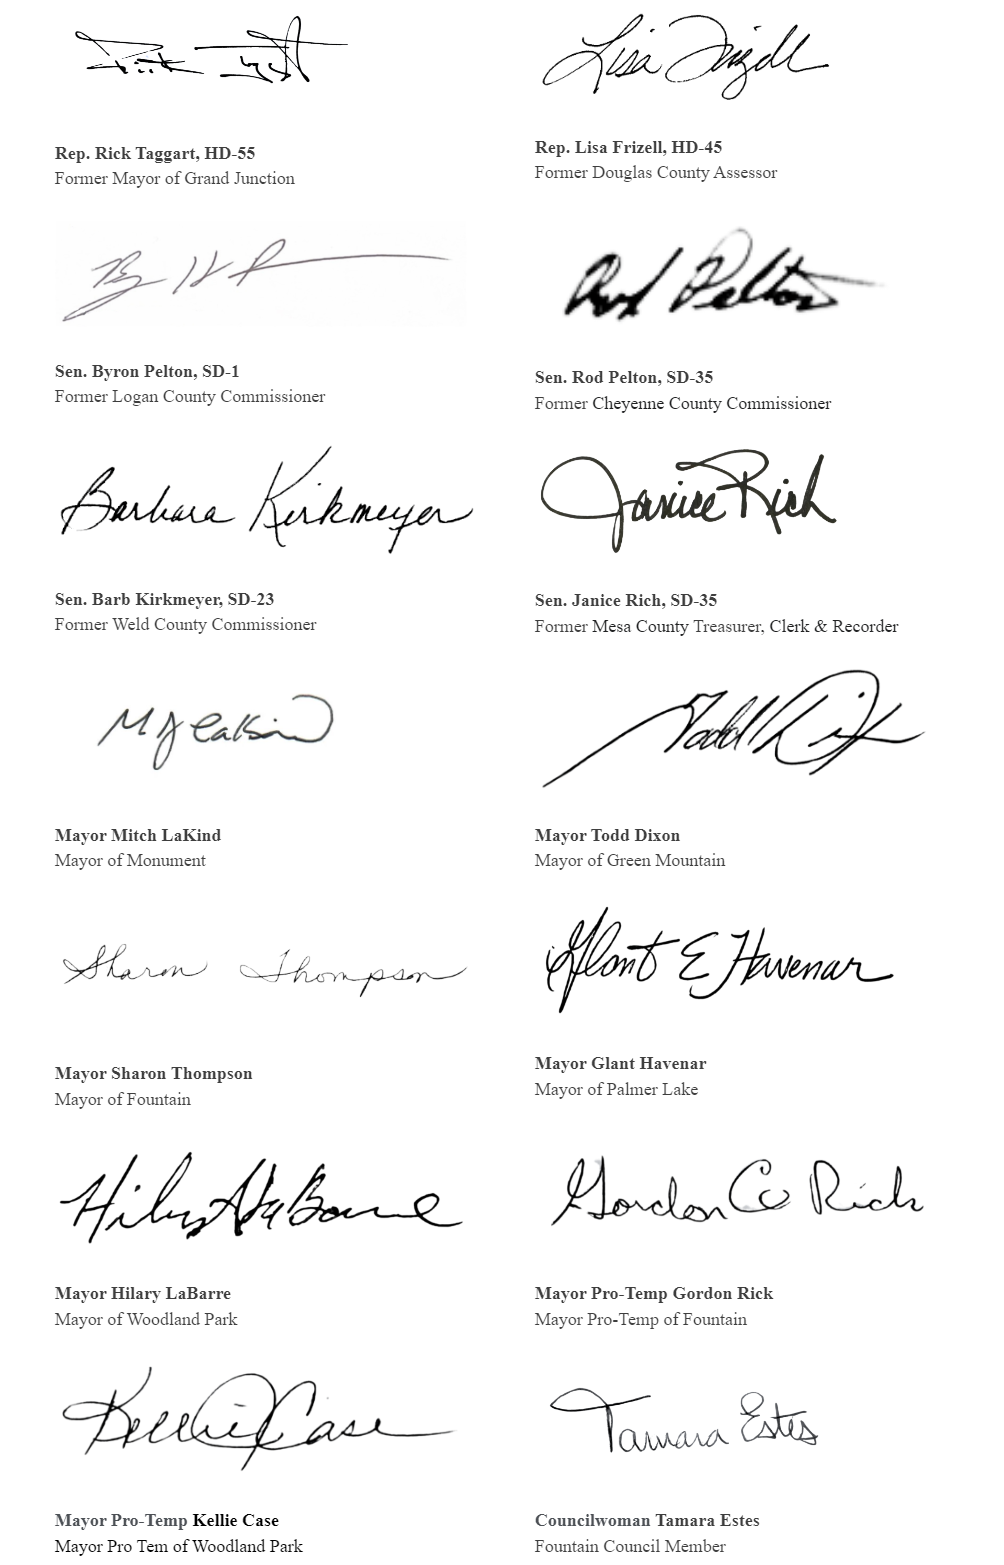 Rick Taggart
Lisa Frizell
Rep. Rick Taggart, HD-55
Former Mayor of Grand Junction
Rep. Lisa Frizell, HD-45
Former Douglas County Assessor
Rod Pelton
Sen. Byron Pelton, SD-1
Former Logan County Commissioner
Sen. Rod Pelton, SD-35
Former Cheyenne County Commissioner
Barbara Kirkmeyer
Janice Rich
Sen. Barb Kirkmeyer, SD-23
Former Weld County Commissioner
Sen. Janice Rich, SD-35
Former Mesa County Treasurer, Clerk & Recorder
M J LaKind
Todd Dixon
Mayor Mitch LaKind
Mayor of Monument
Mayor Todd Dixon
Mayor of Green Mountain
Sharon Thompson
Glant E Havenar
Mayor Sharon Thompson
Mayor of Fountain
Mayor Glant Havenar
Mayor of Palmer Lake
Hilary LaBarre
Gordon Rick
Mayor Hilary LaBarre
Mayor of Woodland Park
Mayor Pro-Temp Gordon Rick
Mayor Pro-Temp of Fountain
Kellie Case
Tamara Estes
Mayor Pro-Temp Kellie Case
Mayor Pro Tem of Woodland Park
Councilwoman Tamara Estes
Fountain Council Member